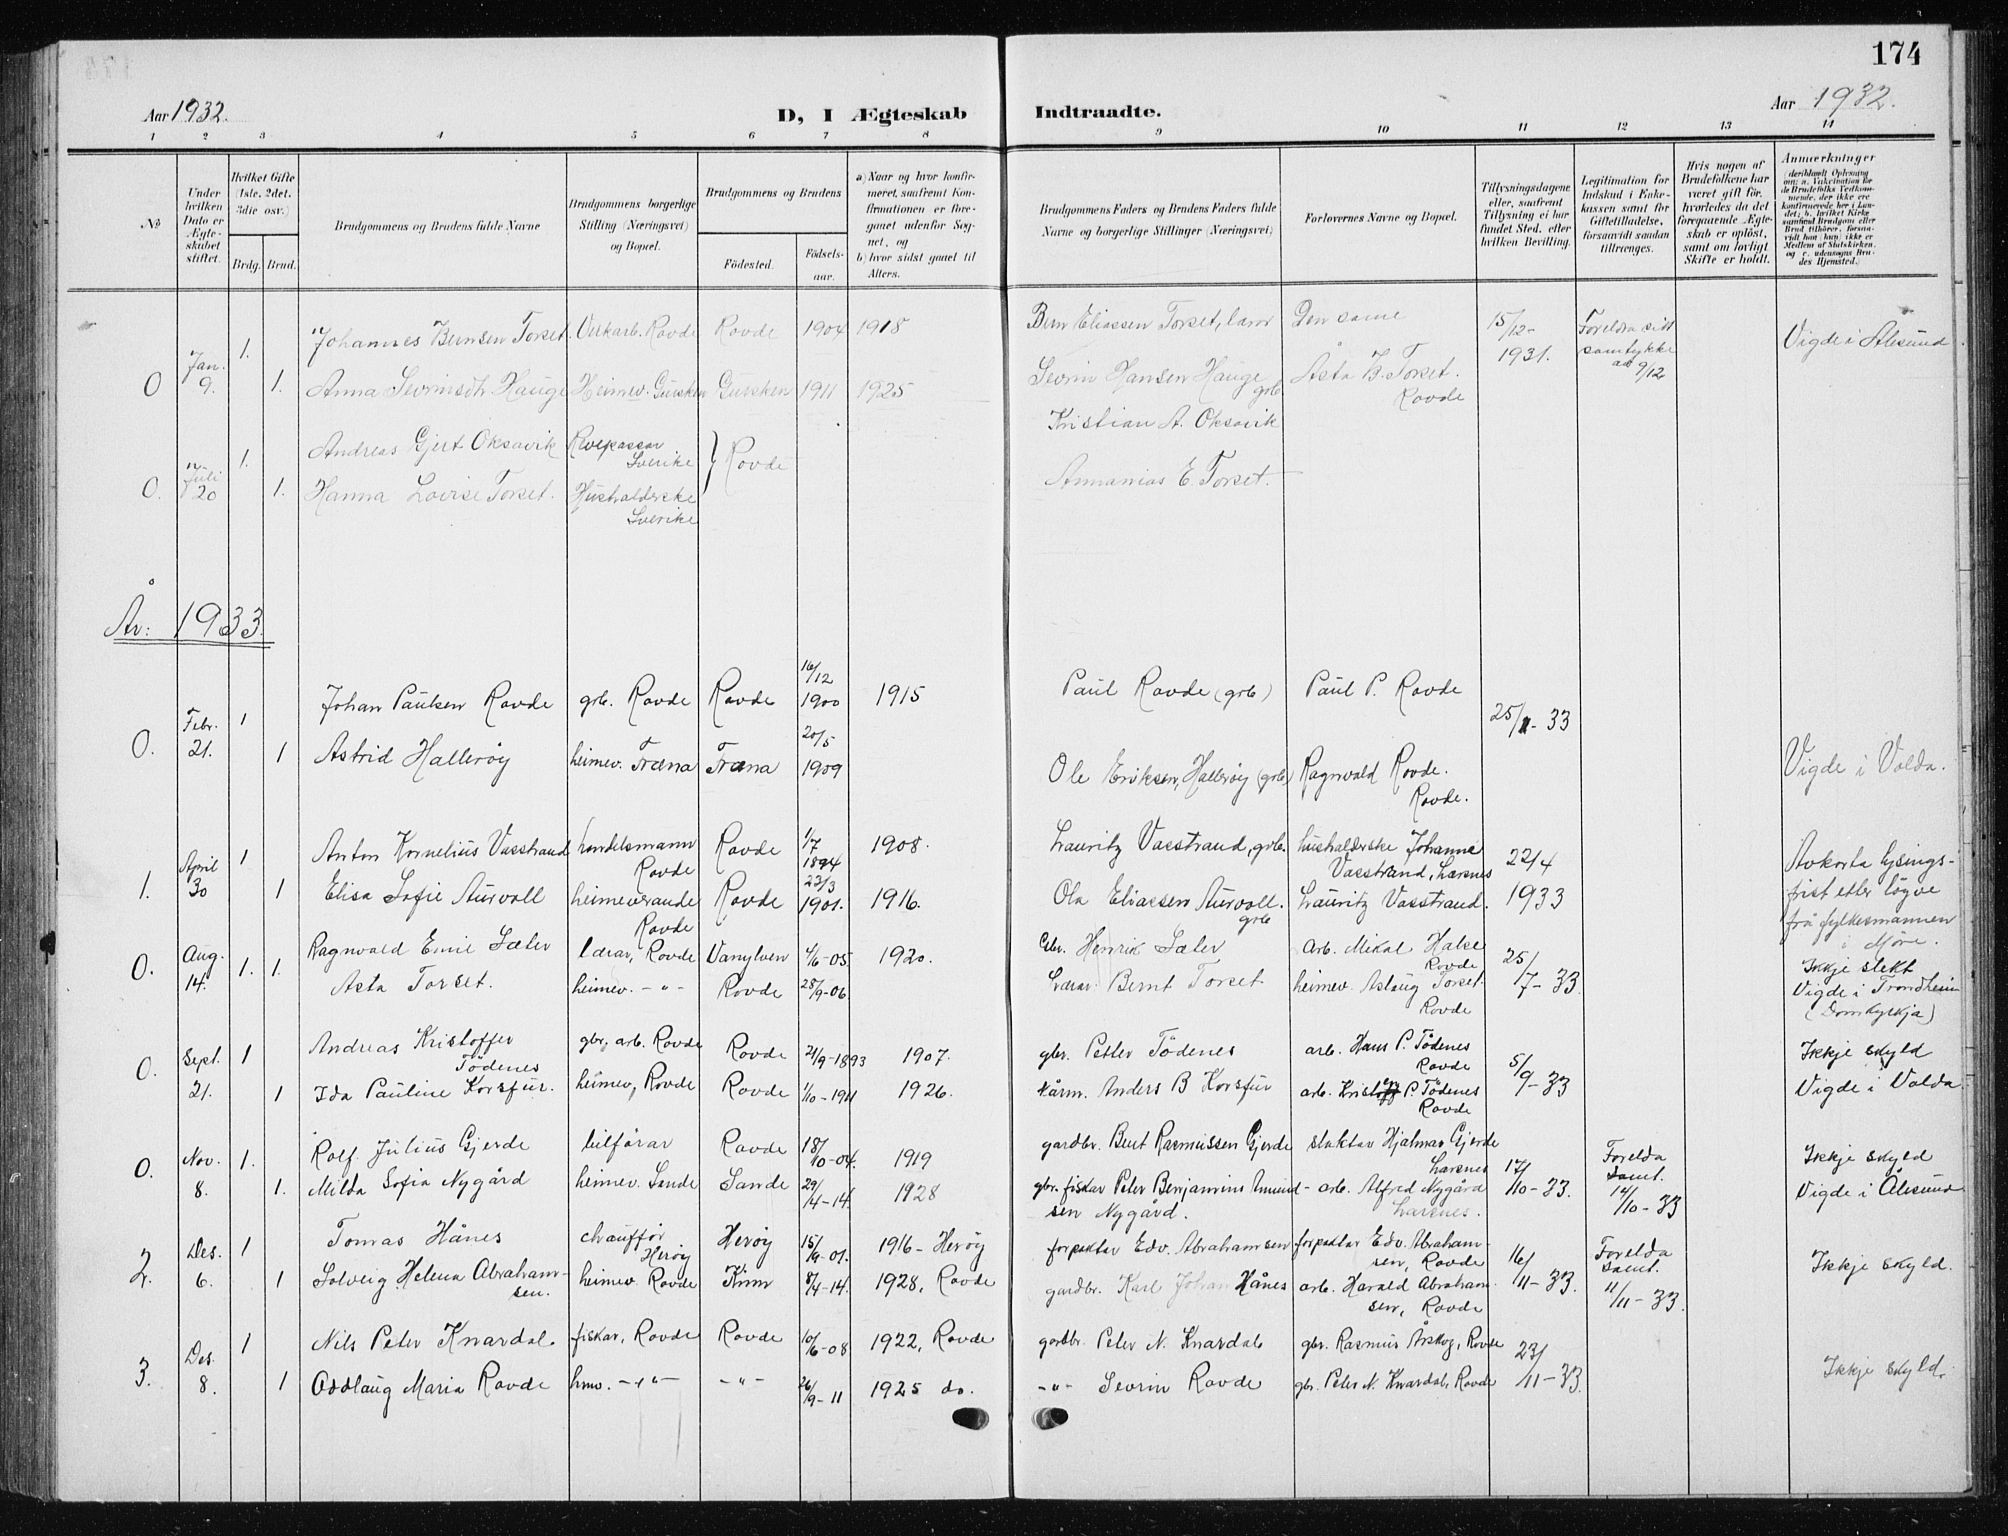 174
Aar 1932.
D, I Ægteskab Indtraadte.
Aar 1932.
1 2 3 4 5 6 7 8 9 10 11 12 13 14
No
Under hvilken Dato er Ægteskabet stiftet.
Hvilket Gifte (1ste, 2det, 3die osv.)
Brdg. Brud.
Brudgommens og Brudens fulde Navne
Brudgommens borgerlige Stilling (Næringsvei) og Bopæl.
Brudgommens og Brudens
Födested.
Födsels-aar.
a) Naar og hvor konfirmeret, saafremt Konfirmationen er foregaaet udenfor Sognet, og
b) hvor sidst gaaet til Alters.
Brudgommens Faders og Brudens Faders fulde Navne og borgerlige Stillinger (Næringsvei)
Forlovernes Navne og Bopæl.
Tillysningsdagene eller, saafremt Tillysning ei har fundet Sted, efter hvilken Bevilling.
Legitimation for Indskud i Enkekassen samt for Giftetilladelse, forsaavidt saadan tiltrænges.
Hvis nogen af Brudefolkene har været gift før, hvorledes da det foregaaende Ægteskab er oplöst, samt om lovligt Skifte er holdt.
Anmærkninger
0 Jan. 9. 1. Johannes Bernsen Torset. Verkarb. Rovde Rovde 1904 1918 Bern Eliassen Torset, lærer Den same 15/12- 1931. Foreldra sitt samtykke av 9/12 Vigde i Ålesund
1. Anna Sevrinsdtr. Hauge Heimev. Gursken Gursken 1911 1925 Sevrin Hansen Hauge grb. Åsta B. Torset. Rovde
0. Juli 20 1. Andreas Gjert Oksavik Sverike } Rovde Kristian A. Oksavik
1. Hanna Lovise Torset. Hushalderske Sverike Annanias E. Torset.
År: 1933.
0. Febr. 21. 1 Johan Paulsen Rovde grb. Rovde Rovde 16/12 1900 1915 Paul Rovde (grb) Paul P. Rovde 25/1-33
1 Astrid Hallerøy heimev. Fræna Fræna 20/5 1909 Ole Eriksen, Hallerøy (grb) Ragnvald Rovde. Rovde. Vigde i Volda.
1. April 30 1 Anton Kornelius Vasstrand handelsmann Rovde Rovde 1/7 1894 1908. Lauritz Vasstrand, grb. hushalderske Johanna Vasstrand, Larsnes 22/4 1933 Avkorta lysings-
1 Elisa Sofie Aurvoll heimeverande Rovde Rovde 23/3 1901. 1916. Ola Eliassen Aurvoll. grb Lauritz Vasstrand. frist etter løyve
frå fylkesmannen
i Møre.
0. Aug. 14. 1. 1. Ragnvald Emil Sæter lærar, Rovde Vanylven 4/6-05 1920. Gbr. Henrik Sæter arb. Mikal Hakse Rovde 25/7-33 Ikkje slekt
Asta Torset. heimev. -"- Rovde 28/9-06. Lærar Bernt Torset heimev. Aslaug Torset Rovde Vigde i Trondheim
(Domkyrkja)
0. Sept. 21. 1 Andreas Kristoffer Tödenes gbr, arb. Rovde Rovde 21/9-1893 1907. gbr. Petter Tödenes arb. Hans P. Tödenes Rovde 5/9-33 Ikkje skyld
1 Ida Pauline Korsfur. heimev, Rovde Rovde 1/10-1911 1926. kårm. Anders B Korsfur arb. Kristoff P. Tödenes Rovde Vigde i Volda
0. Nov. 8. 1. Rolf Julius Gjerde bilførar Rovde 18/10-04. 1919 gardbr. Bent Rasmussen Gjerde slaktar Hjalmar Gjerde Larsnes 17/10-33. Forelda samt. 14/10-33 Ikkje skyld
1. Milda Sofia Nygård heimev. Sande Sande 29/4-14. 1928 gbr. fiskar Peter Benjamins Amundsen Nygård. arb. Alfred Nygård Larsnes. Vigde i Ålesund
2. Des. 6. 1 Tomas Hånes chauffør Herøy Herøy 15/9-01. 1916-Herøy forpaktar Edv. Abrahamsen forpaktar Edv. Abrahamsen, Rovde 16/11-33. Forelda samt. 11/11-33. Ikkje skyld.
1 Solveig Helena Abrahamsen. heimev. Rovde 8/4-14. 1928, Rovde gardbr. Karl Johan Hånes arb. Harald Abrahamsen, Rovde
3. Des. 8. 1 Nils Peter Knardal fiskar, Rovde Rovde 10/6-08 1922, Rovde gardbr. Peter N. Knardal gbr. Rasmus Årskog, Rovde 23/11-33. Ikkje skyld.
1 Oddlaug Maria Rovde hmv. -"- -"- 26/9-11 1925 do. -"- Sevrin Rovde gbr. Peter N. Knardal, Rovde